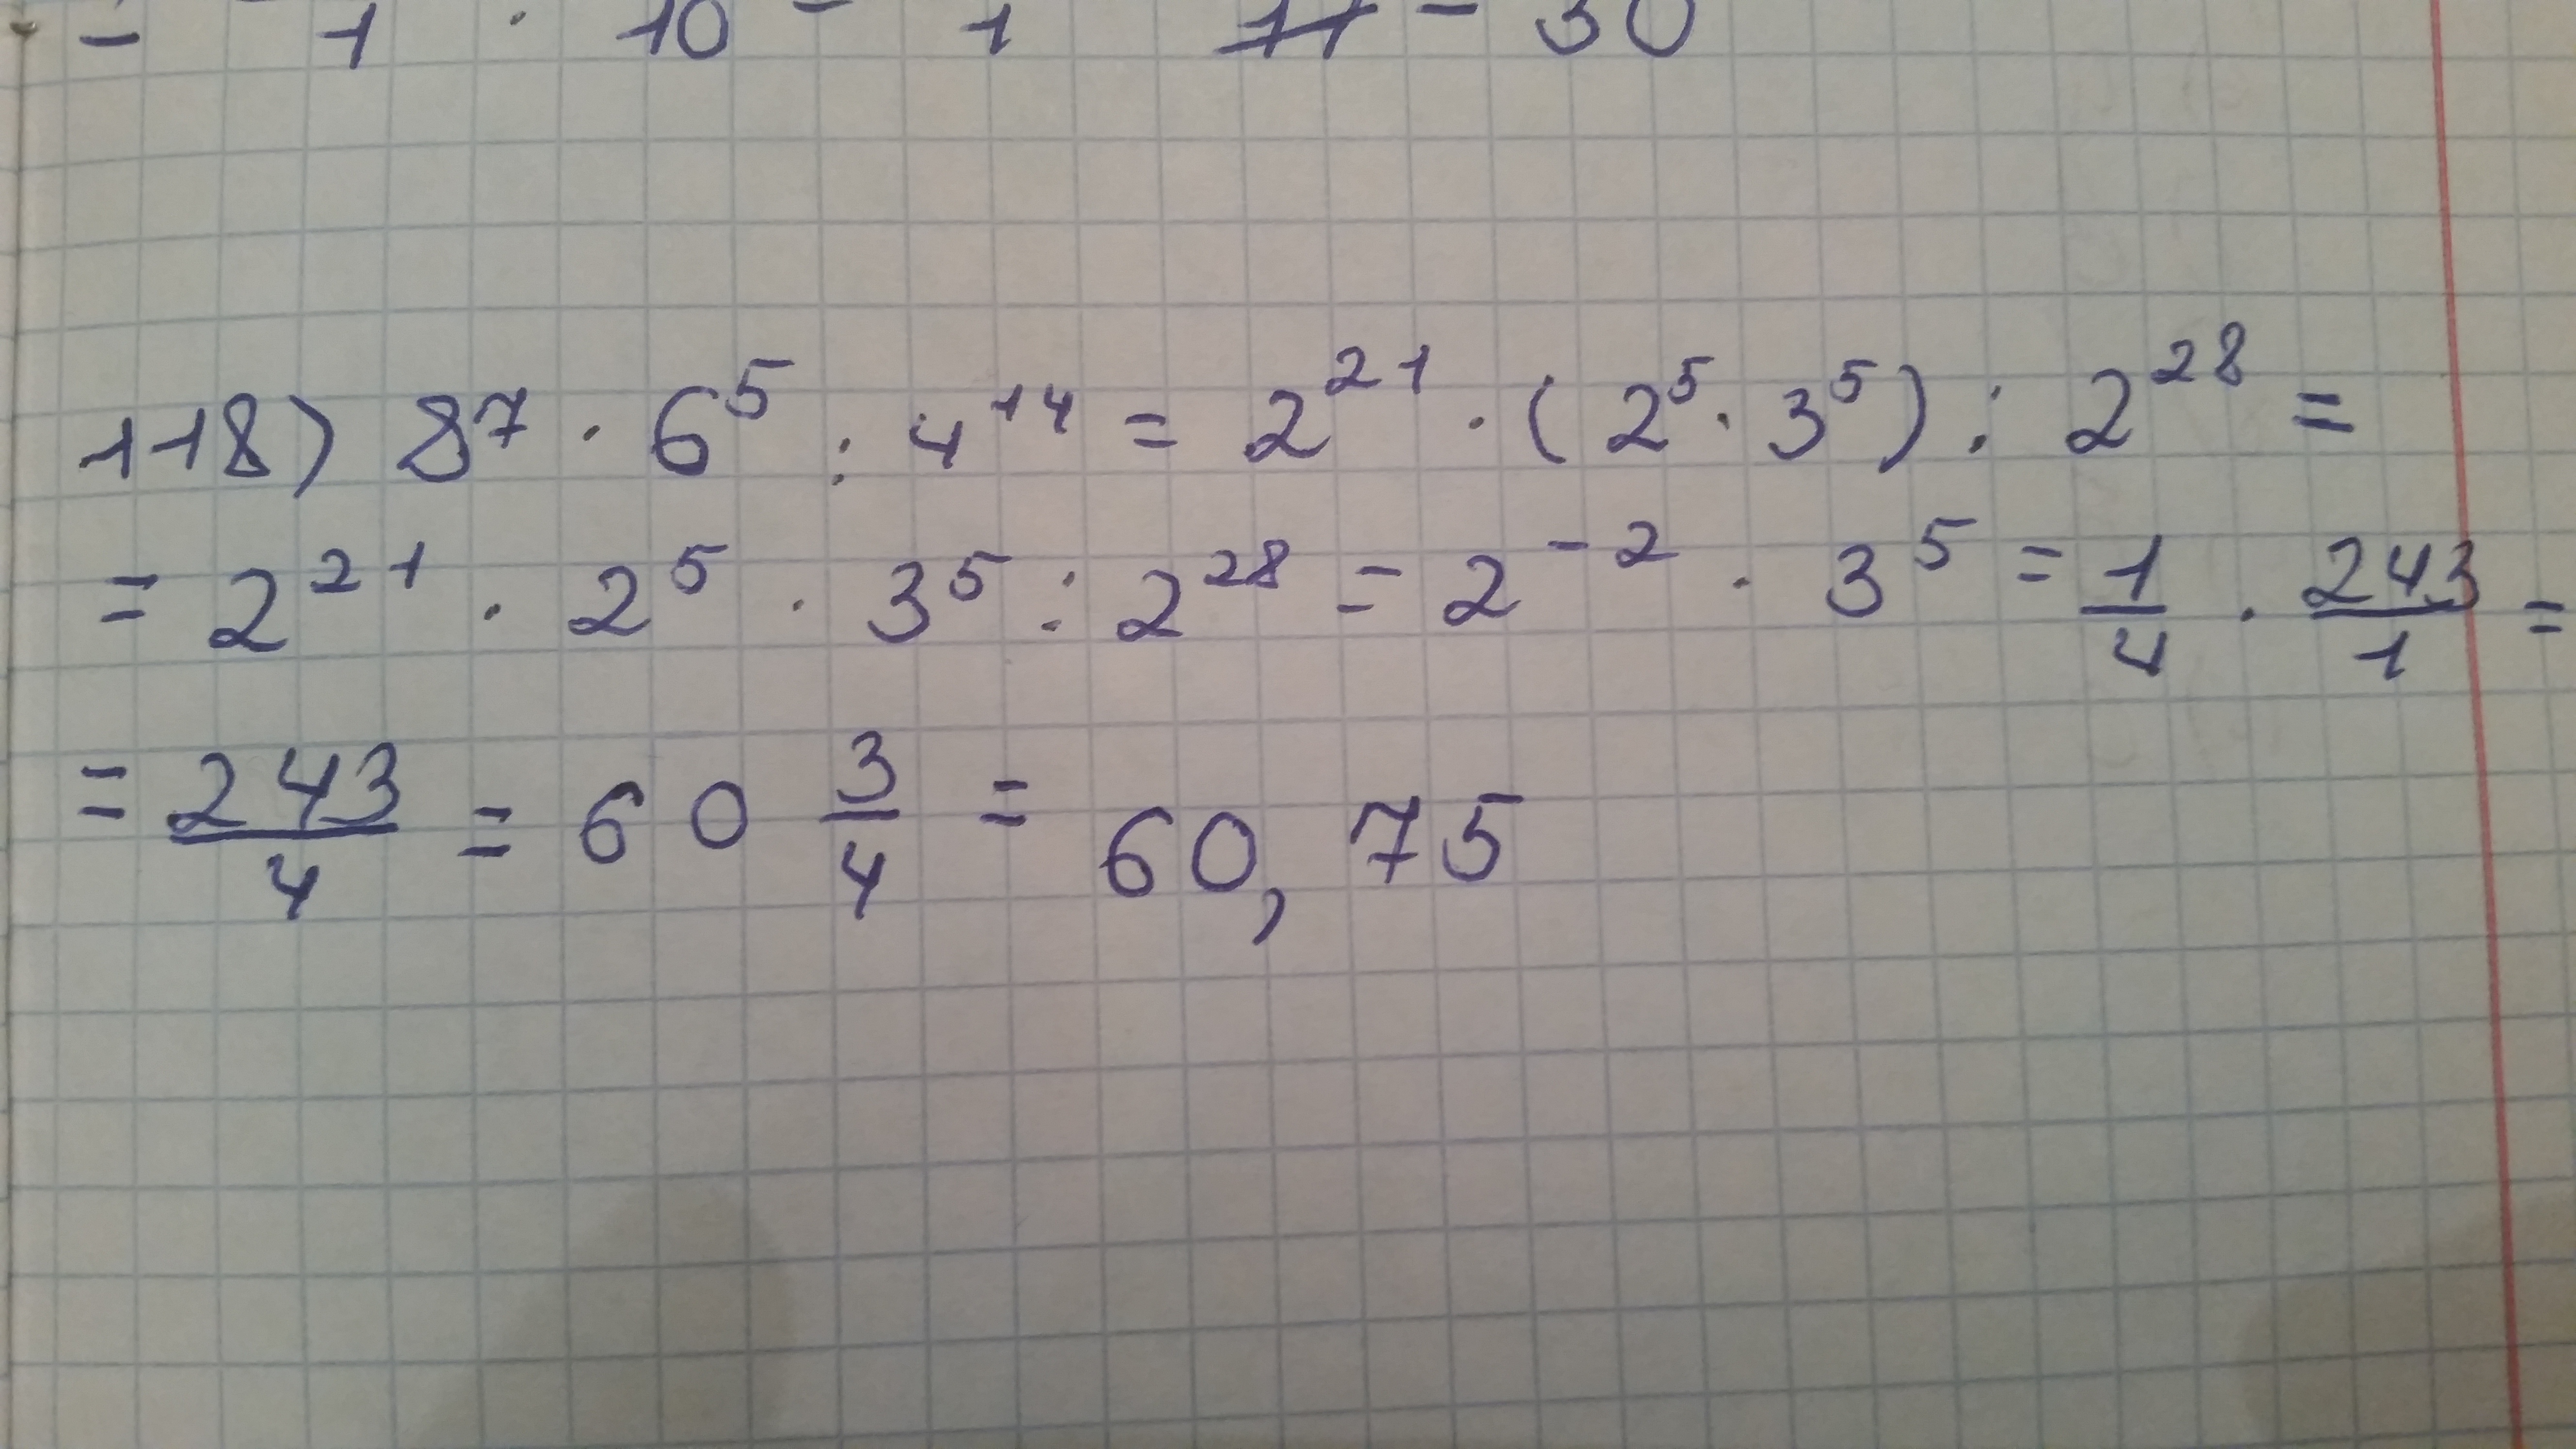 - 1 · 10 - 1 11 - 30
118) 8⁷ · 6⁵ : 4¹⁴ = 2²¹ · (2⁵ · 3⁵) : 2²⁸ =
= 2²¹ · 2⁵ · 3⁵ : 2²⁸ = 2⁻² · 3⁵ = 1/4 · 243/1 =
= 243/4 = 60 3/4 = 60,75